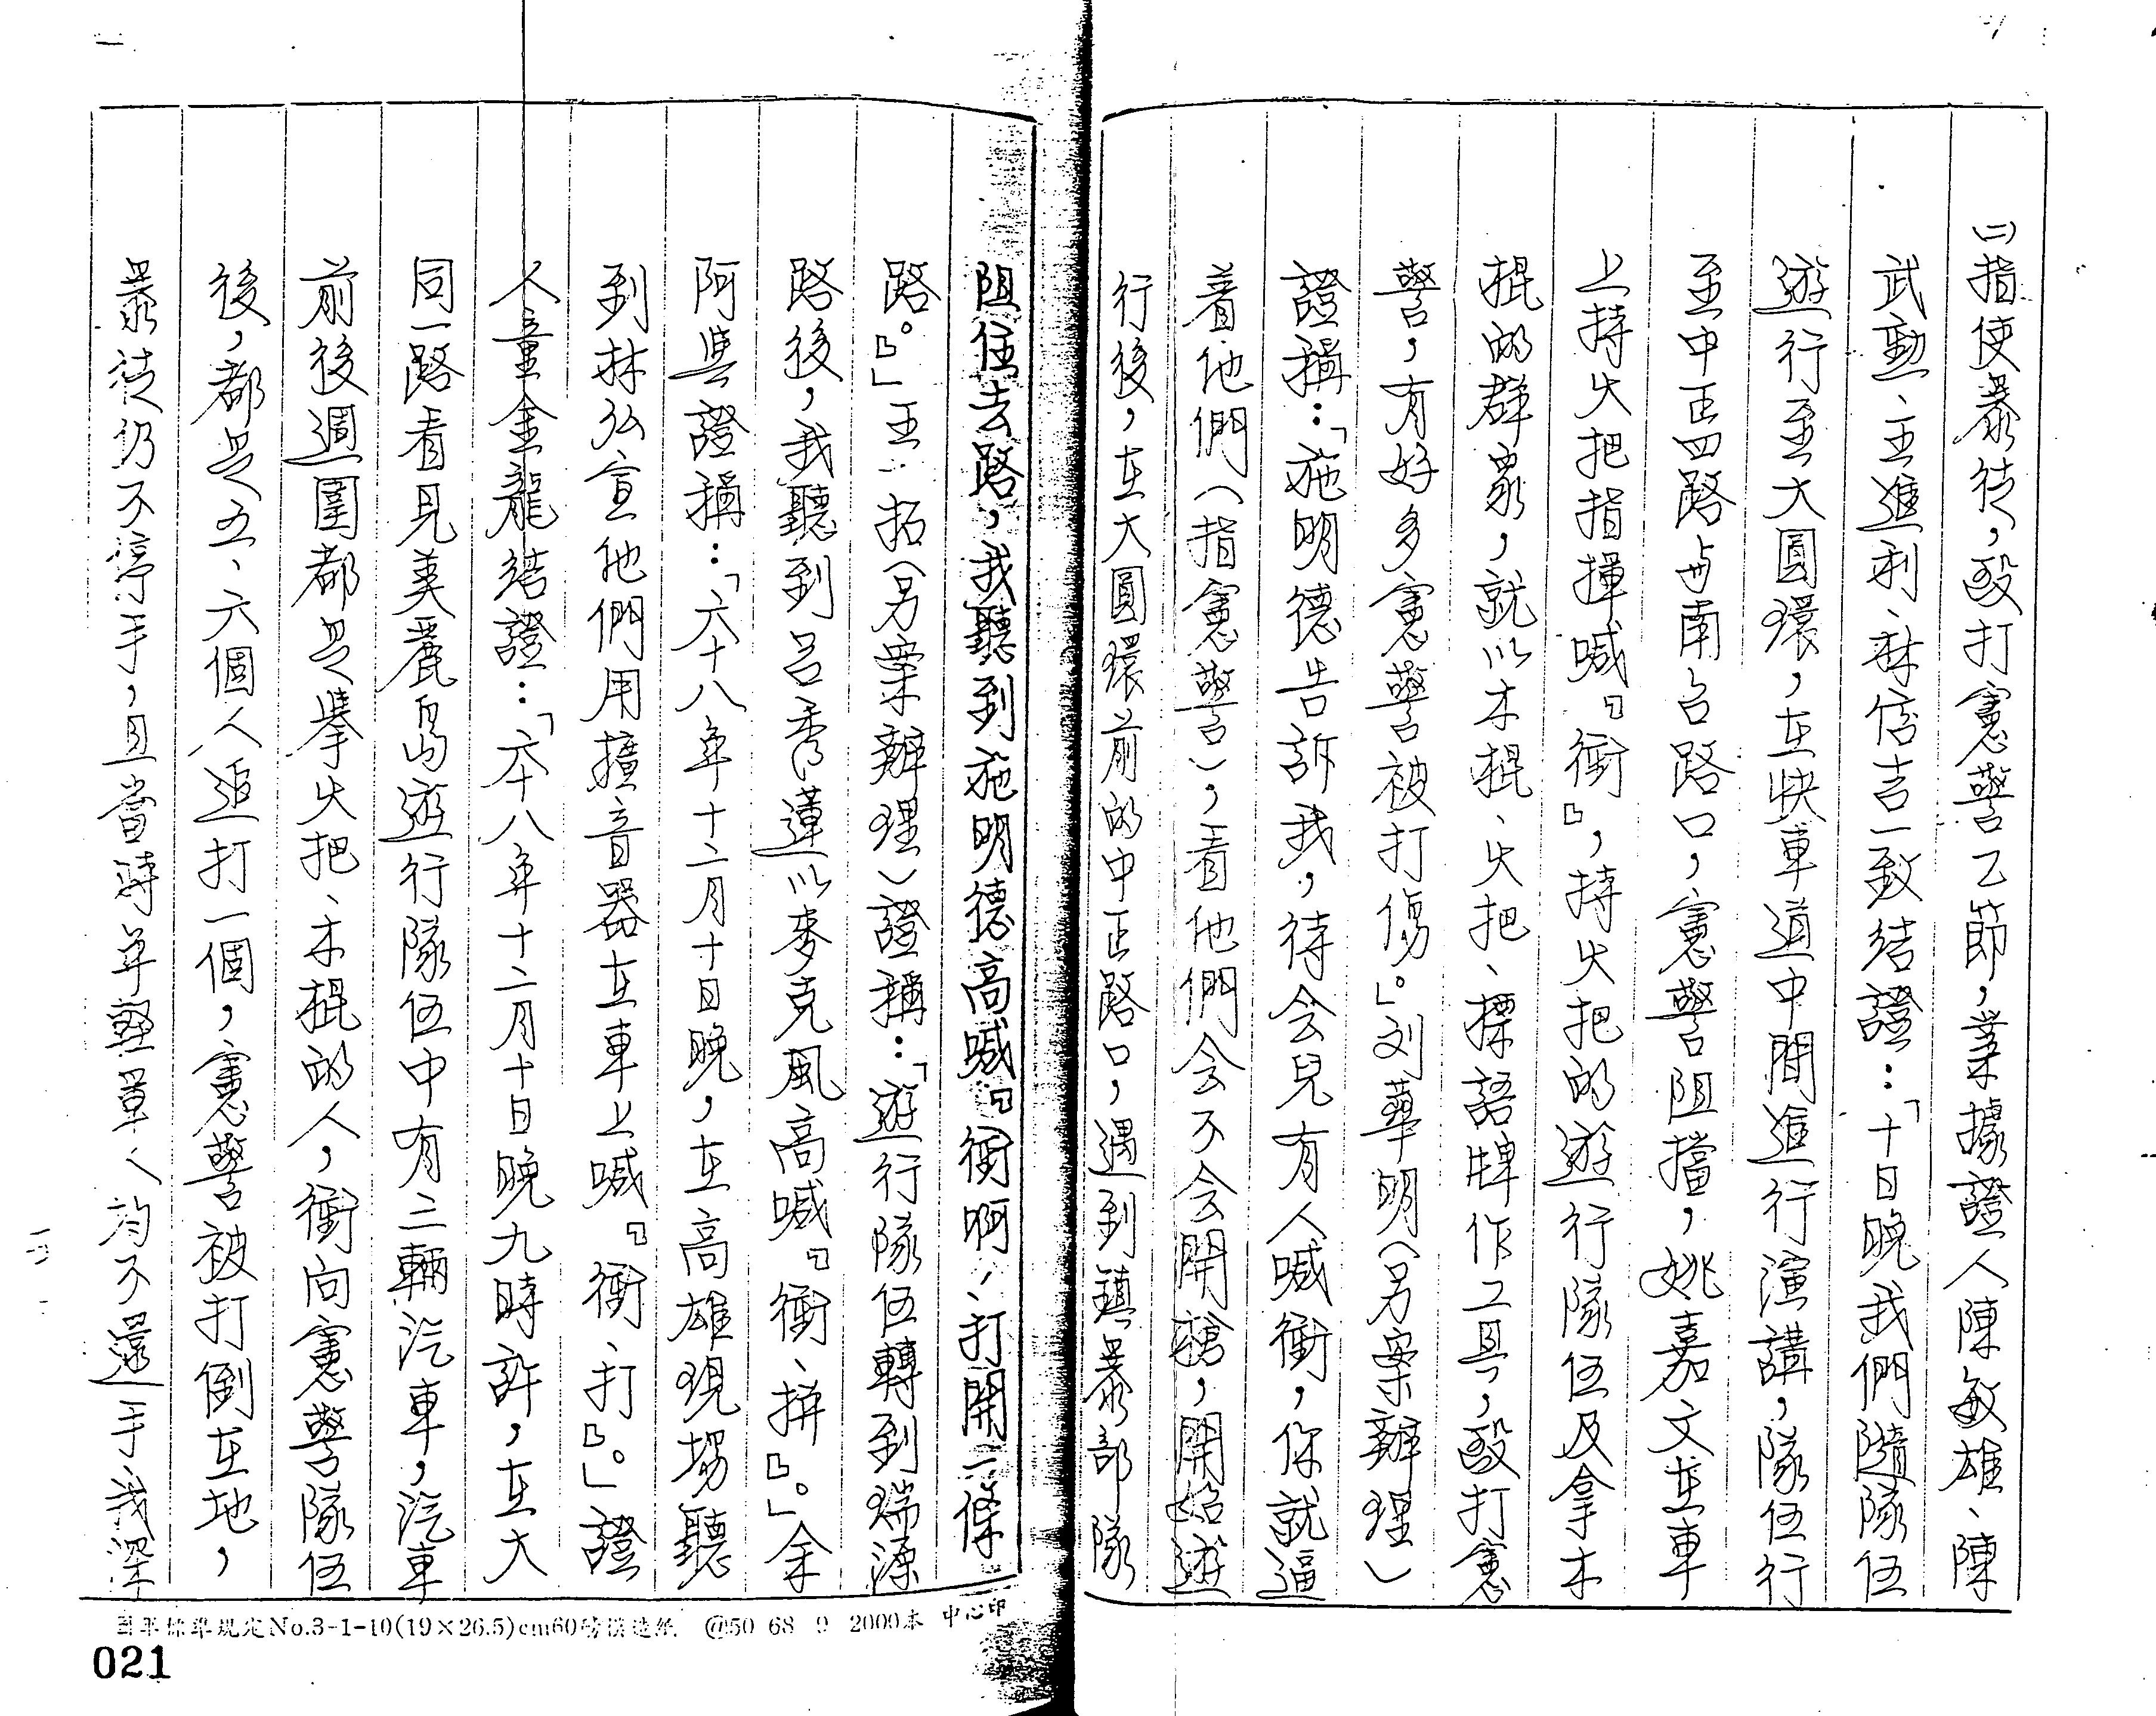 ㈡指使暴徒，毆打憲警乙節，業據證人陳敏雄、陳
武勳、王進利、林信吉一致結證：「十日晚我們隨隊伍
遊行至大圓環，在快車道中間進行演講，隊伍行
至中正四路与南台路口，憲警阻擋，姚嘉文在車
上持火把指揮喊『衝』，持火把的遊行隊伍及拿木
棍的群眾，就以木棍、火把、標語牌作工具，毆打憲
警，有好多憲警被打傷。」刘華明（另案辦理）
證稱：「施明德告訴我，待会兒有人喊衝，你就逼
着他們（指憲警），看他們会不会開槍，開始遊
行後，在大圓環前的中正路口，遇到鎮暴部隊
阻住去路，我聽到施明德高喊『衝啊、打開一條
路。』」王 拓（另案辦理）證稱：「遊行隊伍轉到瑞源
路後，我聽到呂秀蓮以麥克風高喊『衝、拼』。」余
阿興證稱：「六十八年十二月十日晚，在高雄現場聽
到林弘宣他們用擴音器在車上喊『衝、打』。」證
人童金龍結證：「六十八年十二月十日晚九時許，在大
同一路看見美麗島遊行隊伍中有三輛汽車，汽車
前後週圍都是擧火把、木棍的人，衝向憲警隊伍
後，都是五、六個人追打一個，憲警被打倒在地，
暴徒仍不停手，且當時軍警單人均不還手，我深
國軍標準規定No.3-1-10(19×26.5)cm60磅模造紙 @50 68 9 2000本 中心印
021